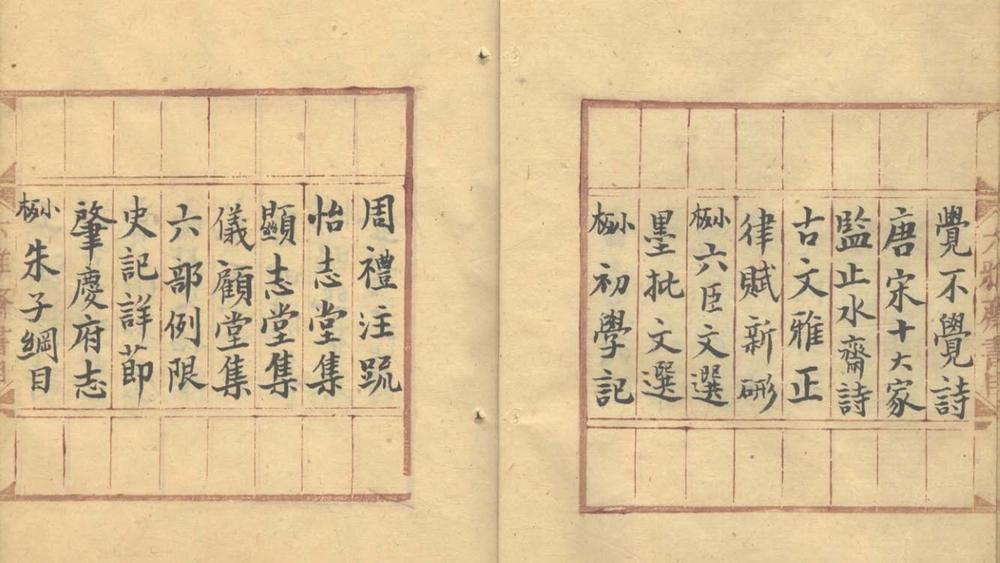 大雅齋書目
覺不覺詩
唐宋十大家
監止水齋詩
古文雅正
律賦新硎
小板六臣文選
墨批文選
小板初學記
周禮注疏
怡志堂集
顯志堂集
儀顧堂集
六部例限
史記詳節
肇慶府志
小板朱子綱目